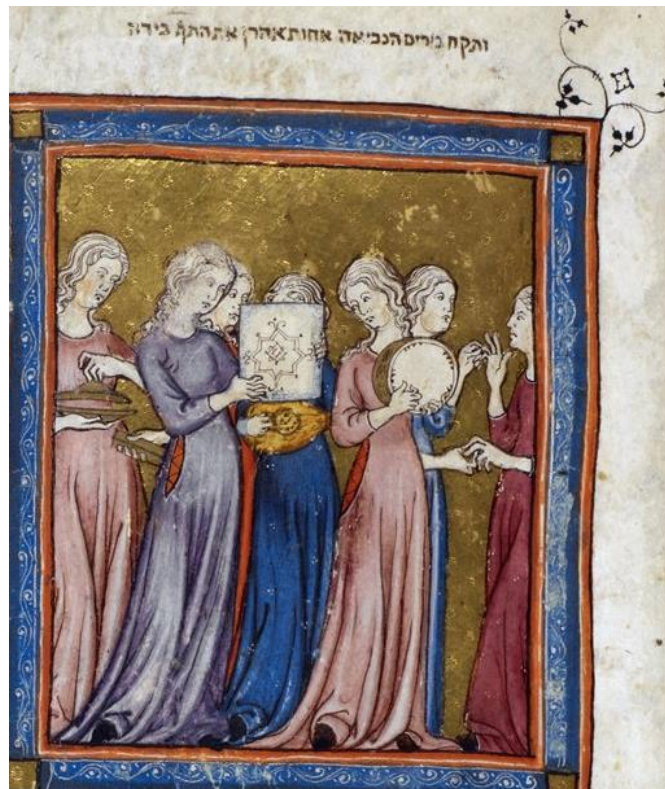 ותקח מרים הנביאה אחות אהרן את התף בידה